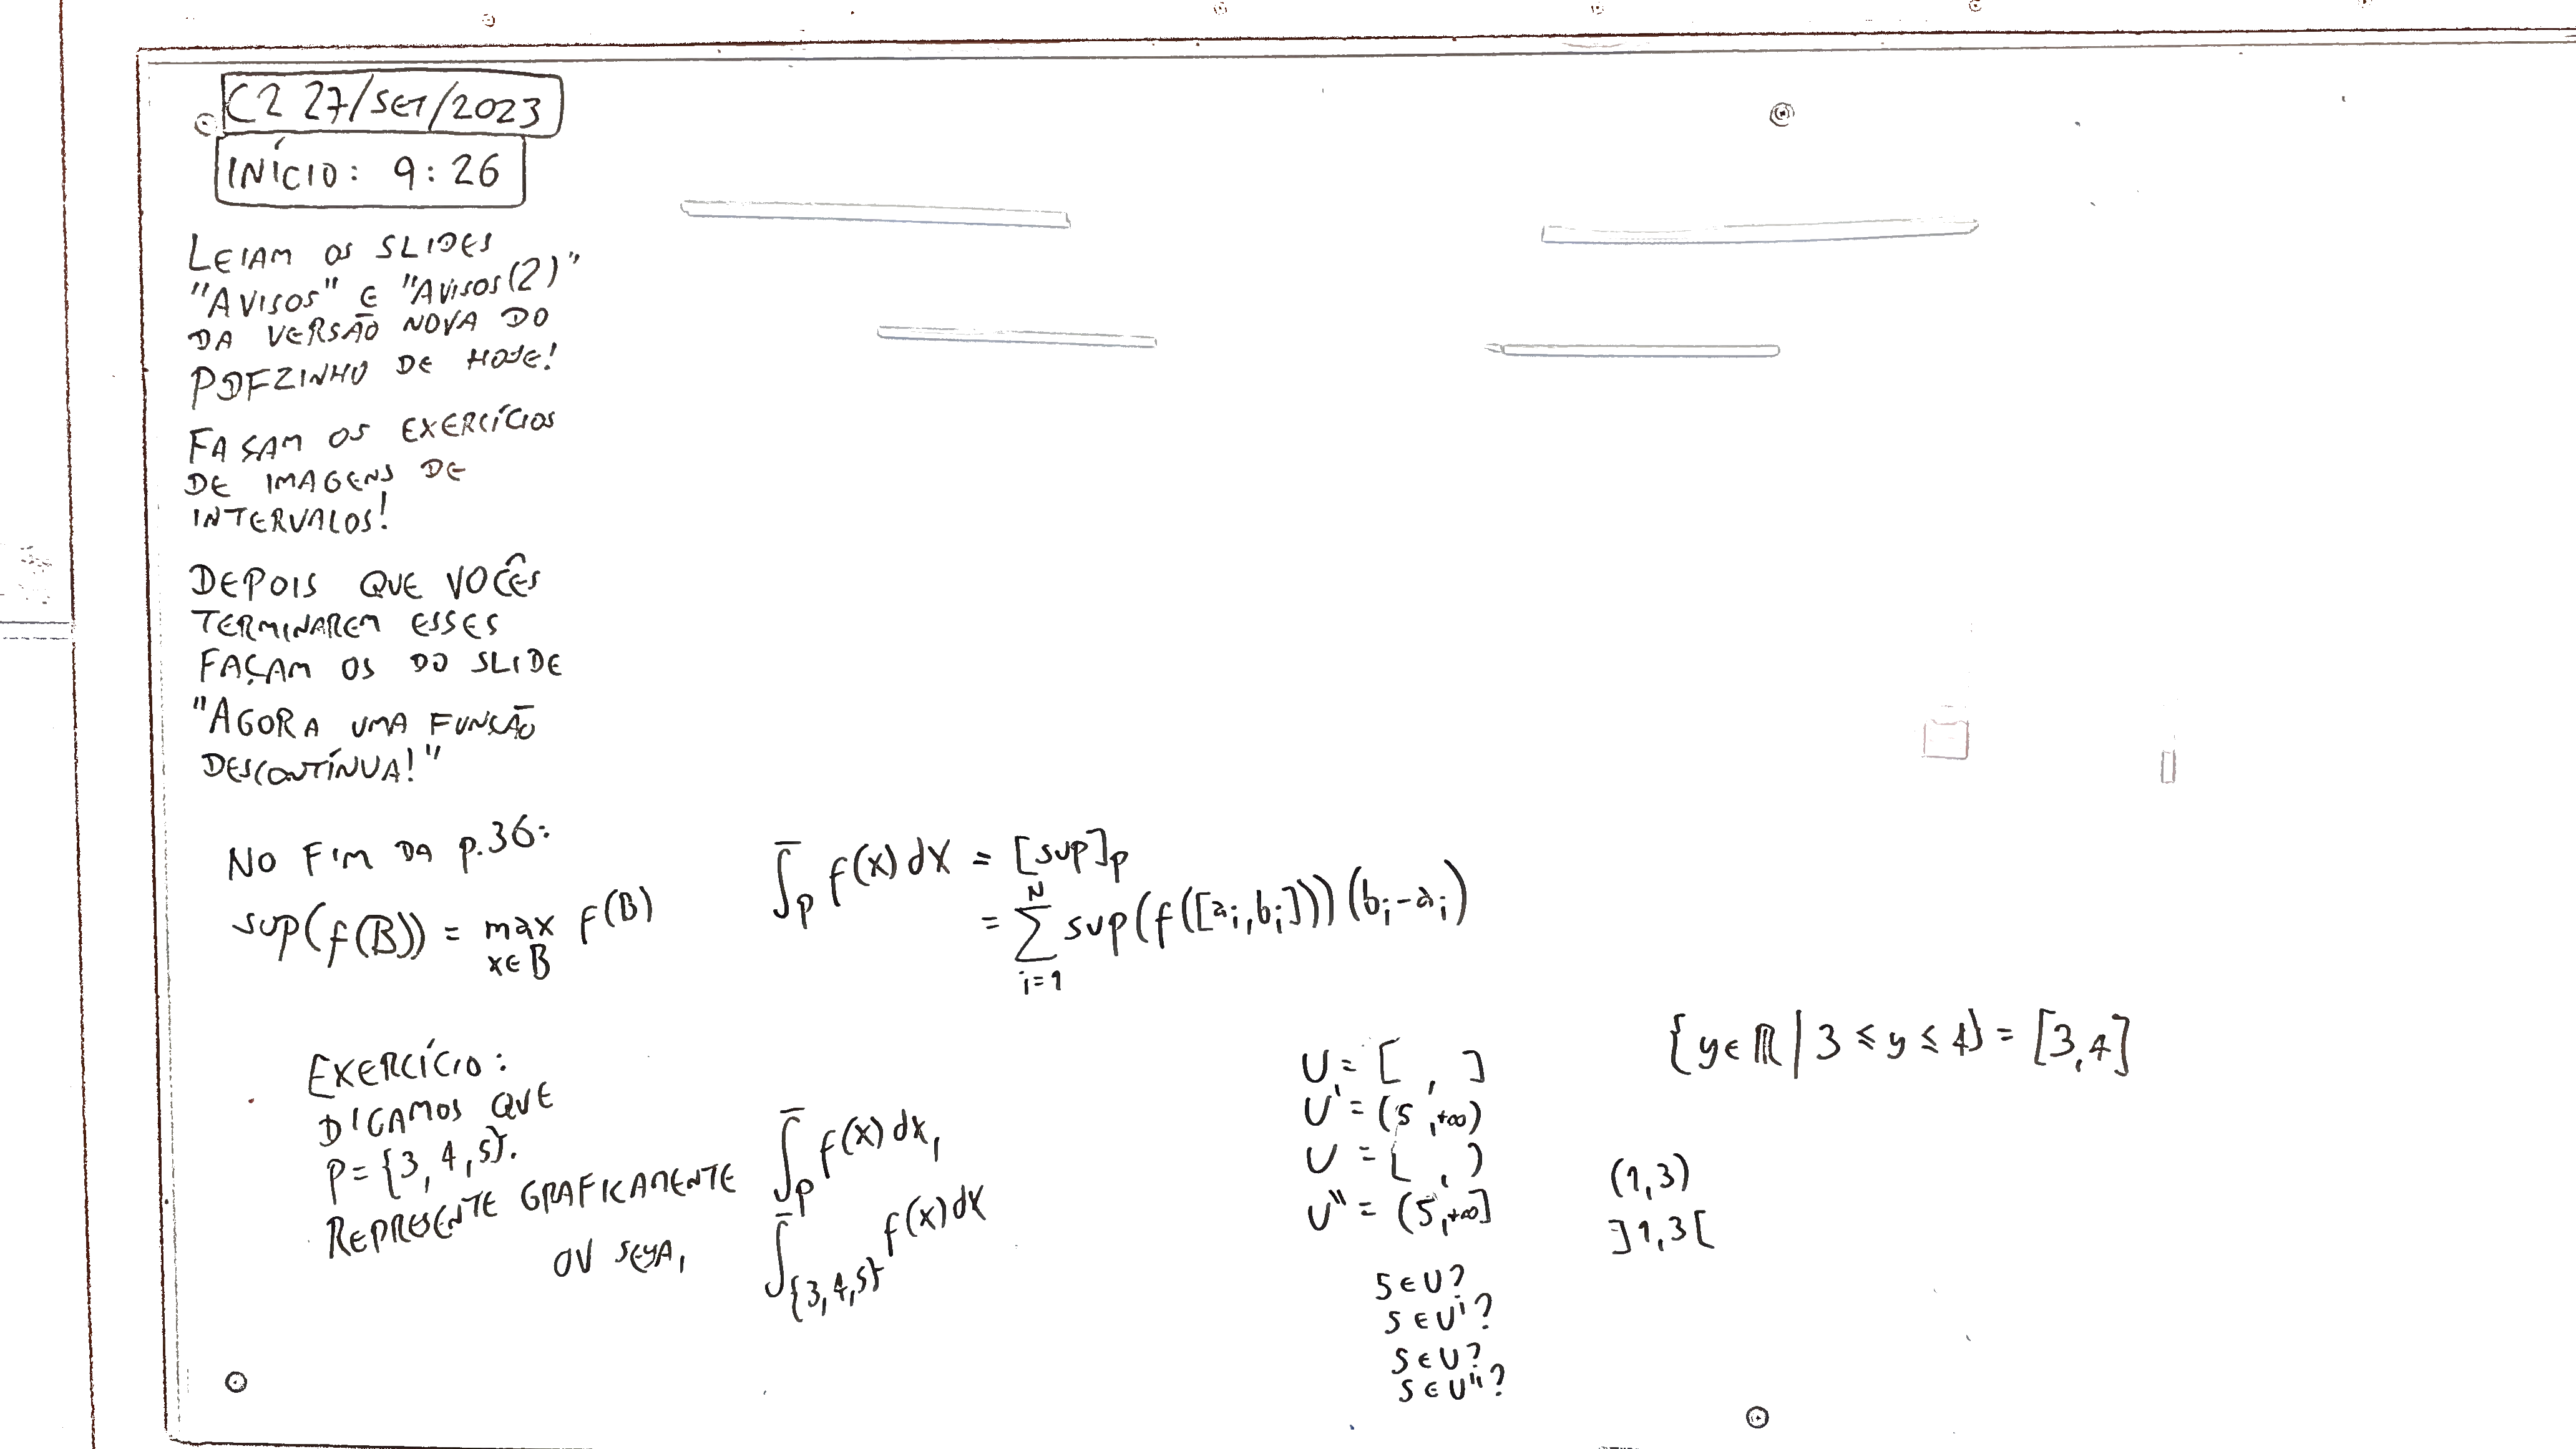 C2 27/SET/2023
INÍCIO: 9:26
LEIAM OS SLIDES
"AVISOS" E "AVISOS(2)"
DA VERSÃO NOVA DO
PDFZINHO DE HOJE!
FAÇAM OS EXERCÍCIOS
DE IMAGENS DE
INTERVALOS!
DEPOIS QUE VOCÊS
TERMINAREM ESSES
FAÇAM OS DO SLIDE
"AGORA UMA FUNÇÃO
DESCONTÍNUA!"
NO FIM DA p.36:
sup(f(B)) = max f(B)
x∈B
∫̅_P f(x) dx = [sup]_P
= Σ_{i=1}^{N} sup(f([a_i,b_i]))(b_i-a_i)
EXERCÍCIO:
DIGAMOS QUE
P={3,4,5}.
REPRESENTE GRAFICAMENTE ∫̅_P f(x) dx,
OU SEJA, ∫̅_{3,4,5} f(x) dx
U = [ , ]
U' = (5,+∞)
U = [ , )
U'' = (5,+∞]
5∈U?
5∈U'?
5∈U?
5∈U'''?
{y∈ℝ | 3 ≤ y ≤ 4} = [3,4]
(1,3)
]1,3[